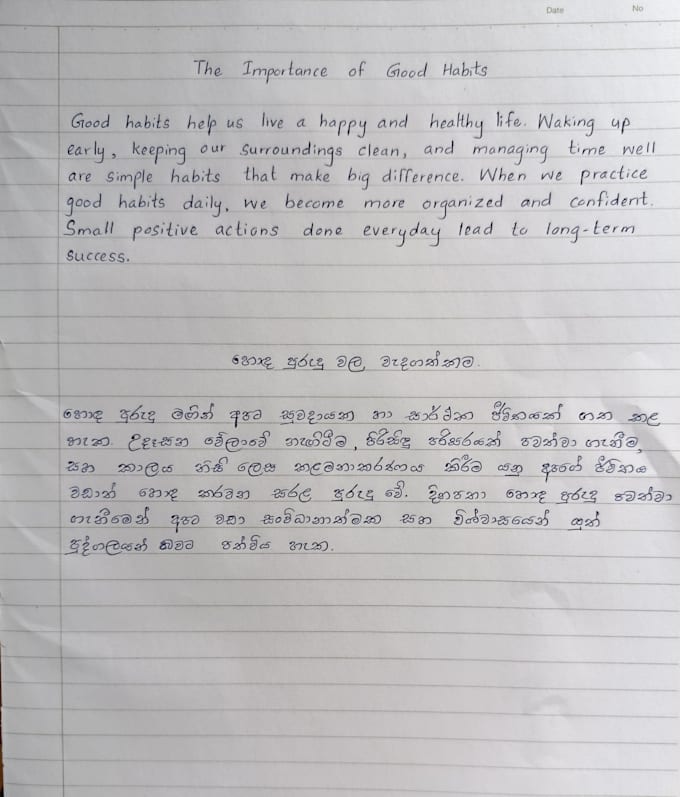 Date No
The Importance of Good Habits
Good habits help us live a happy and healthy life. Waking up
early, keeping our surroundings clean, and managing time well
are simple habits that make big difference. When we practice
good habits daily, we become more organized and confident.
Small positive actions done everyday lead to long-term
success.
හොඳ පුරුදු වල වැදගත්කම.
හොඳ පුරුදු මගින් අපට සුවදායක හා සාර්ථක ජීවිතයක් ගත කළ
හැක. උදෑසන වේලාවේ නැගිටීම, පිරිසිදු පරිසරයක් පවත්වා ගැනීම,
සහ කාලය නිසි ලෙස කළමනාකරණය කිරීම යනු අපගේ ජීවිතය
වඩාත් හොඳ කරවන සරළ පුරුදු වේ. දිනපතා හොඳ පුරුදු පවත්වා
ගැනීමෙන් අපට වඩා සංවිධානාත්මක සහ විශ්වාසයෙන් යුත්
පුද්ගලයන් බවට පත්විය හැක.